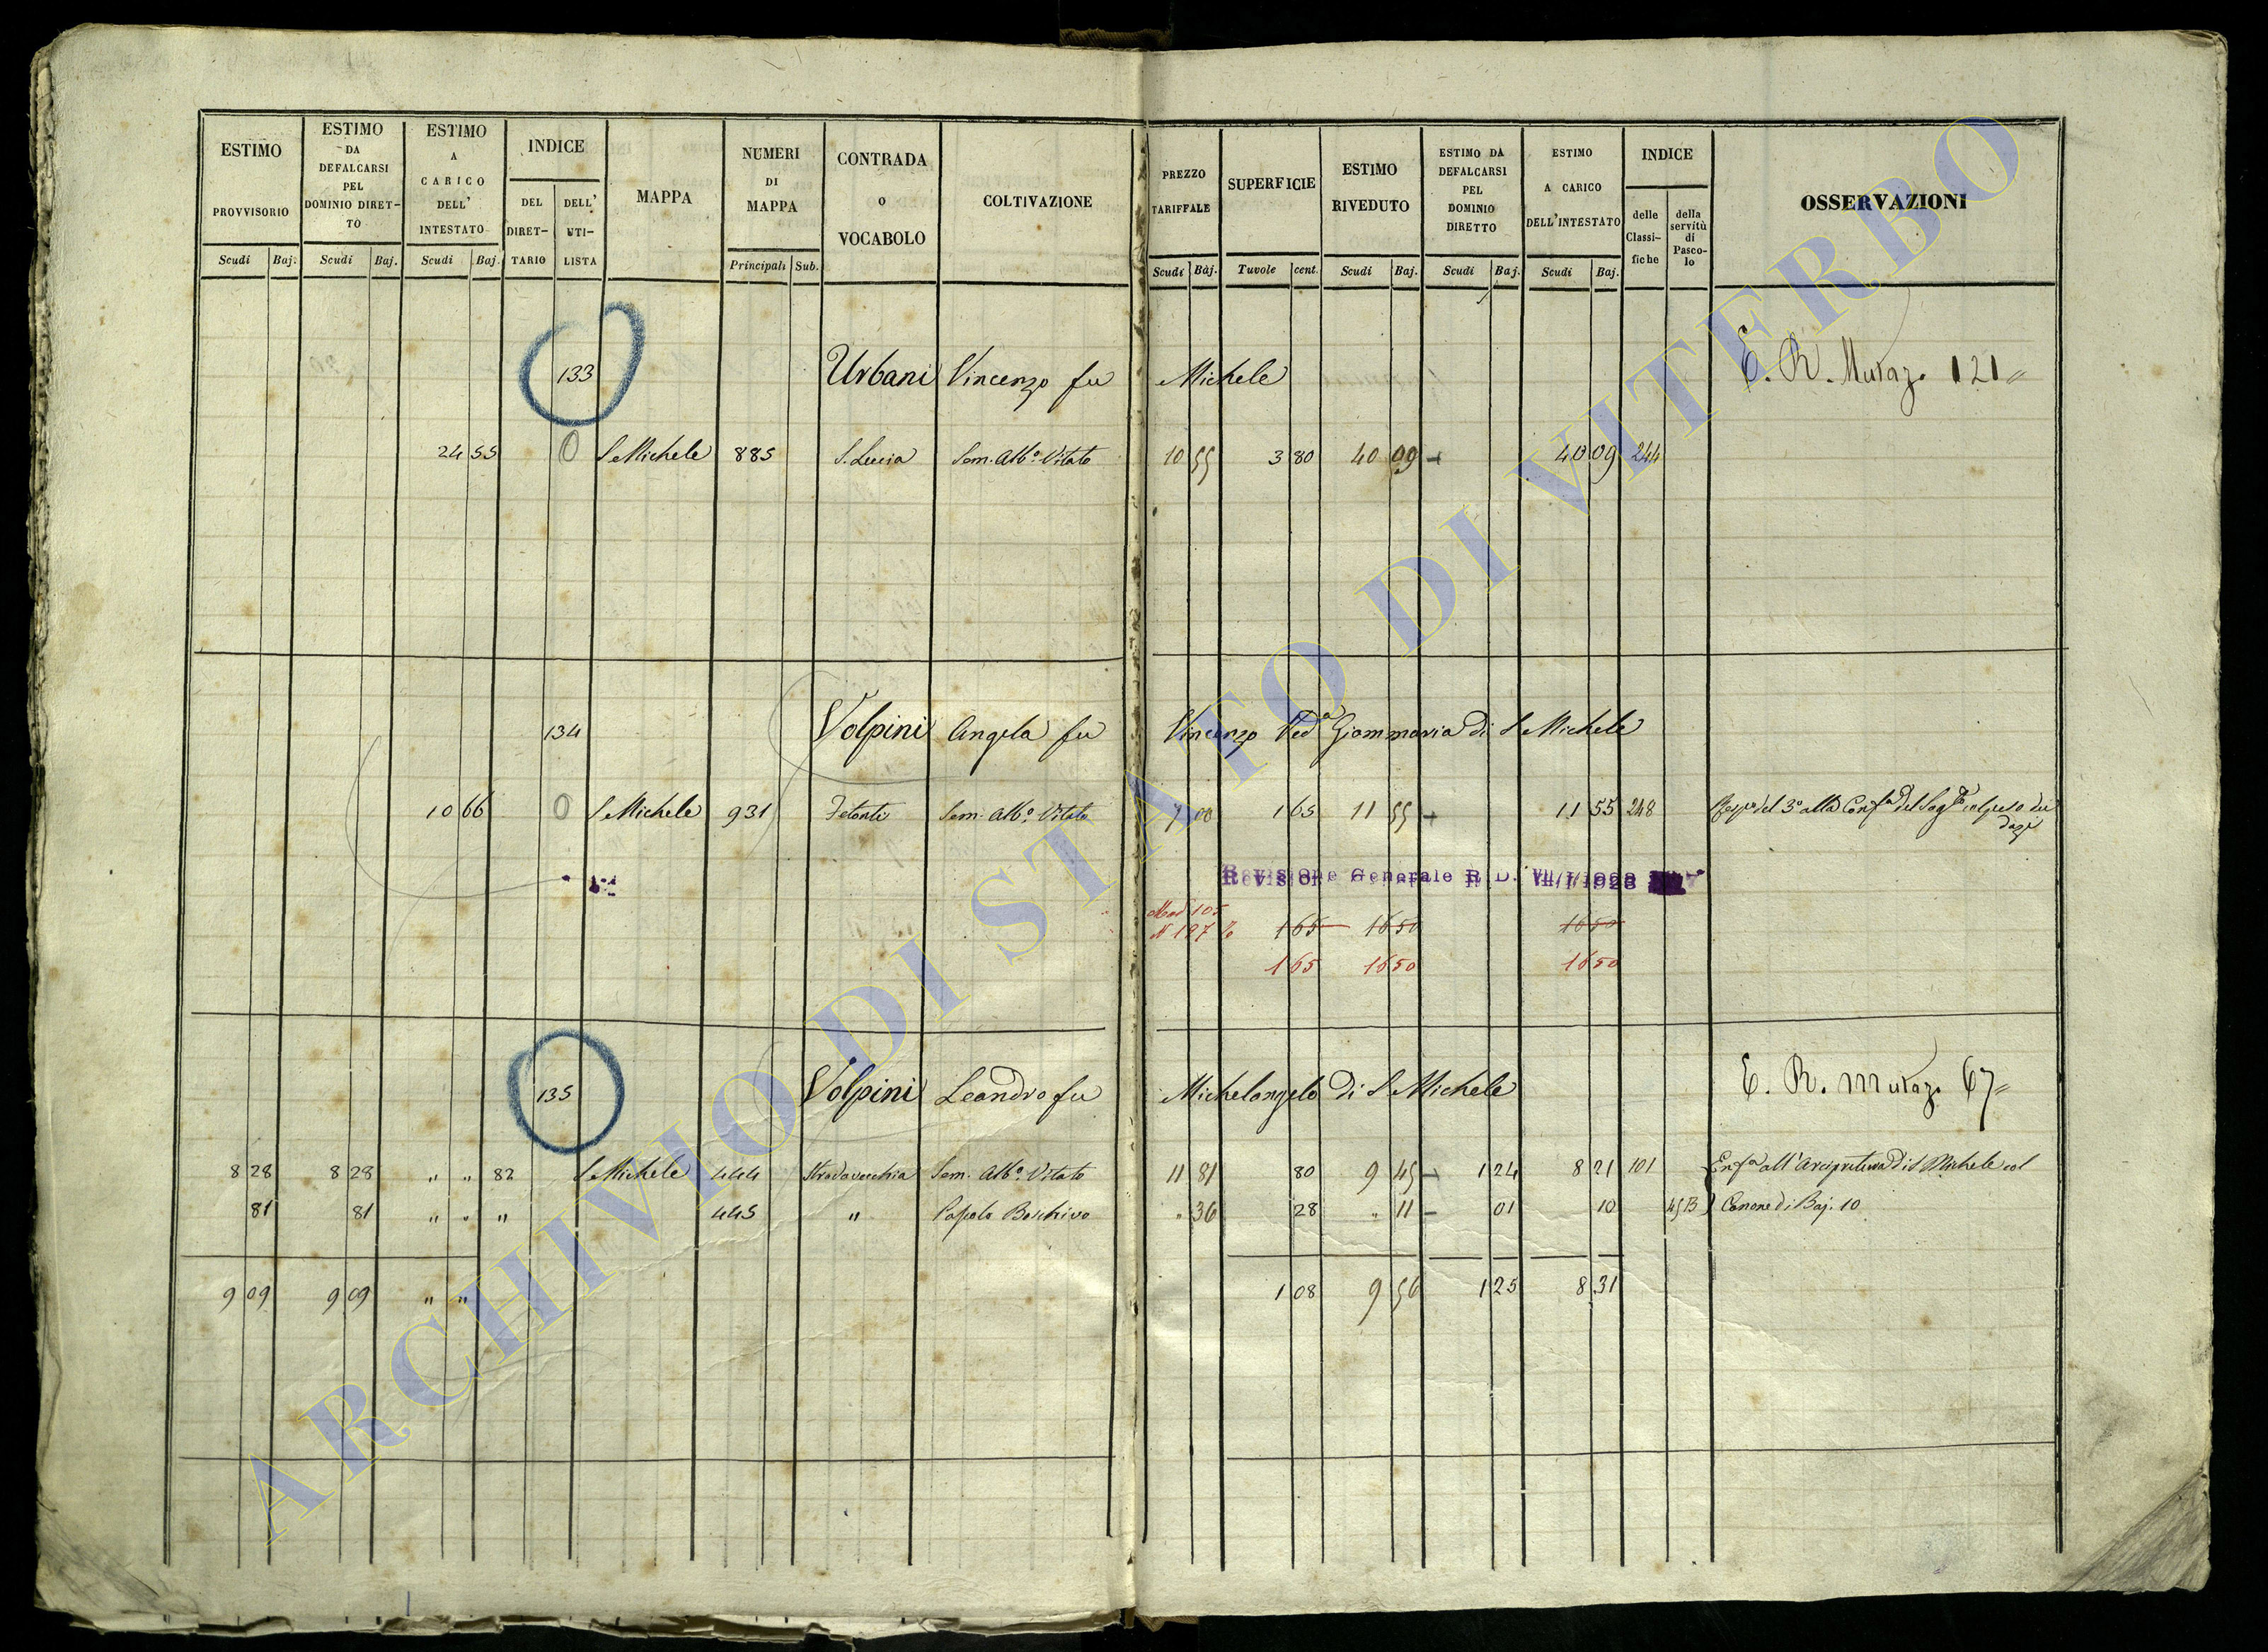 ESTIMO PROVVISORIO
Scudi Baj.
ESTIMO DA DEFALCARSI PEL DOMINIO DIRET-TO
Scudi Baj.
ESTIMO A CARICO DELL' INTESTATO
Scudi Baj.
INDICE
DEL DIRET-TARIO
DELL' UTI-LISTA
MAPPA
NUMERI DI MAPPA
Principali Sub.
CONTRADA o VOCABOLO
COLTIVAZIONE
PREZZO TARIFFALE
Scudi Baj.
SUPERFICIE
Tavole cent.
ESTIMO RIVEDUTO
Scudi Baj.
ESTIMO DA DEFALCARSI PEL DOMINIO DIRETTO
Scudi Baj.
ESTIMO A CARICO DELL'INTESTATO
Scudi Baj.
INDICE
delle Classi-fiche
della servitù di Pasco-lo
OSSERVAZIONI
133 Urbani Vincenzo fu Michele E. R. Mutaz. 121
24 55 0 S. Michele 885 S. Lucia Sem. Alb.º Vitato 10 55 3 80 40 09 40 09 244
134 Volpini Angela fu Vincenzo Ved.a Giammaria di S. Michele
10 66 0 S. Michele 931 Sem. Alb.º Vitato 7 00 1 65 11 55 11 55 248 del 3º alla Conf.a del Sag.to
dazi
Revisione Generale R. D. 1923
Mod 105
N 127 1 65 16 50 16 50
1 65 16 50 16 50
135 Volpini Leandro fu Michelangelo di S. Michele E. R. Mutaz. 67
8 28 8 28 " " 82 S. Michele 444 Stradavecchia Sem. Alb.º Vitato 11 81 80 9 45 1 24 8 21 101 Enf.a all'Arcipretura di S. Michele col
81 81 " " " 445 " Pascolo Boschivo " 36 28 " 11 01 10 45 B Canone di Baj. 10
9 09 9 09 " " 1 08 9 56 1 25 8 31
ARCHIVIO DI STATO DI VITERBO